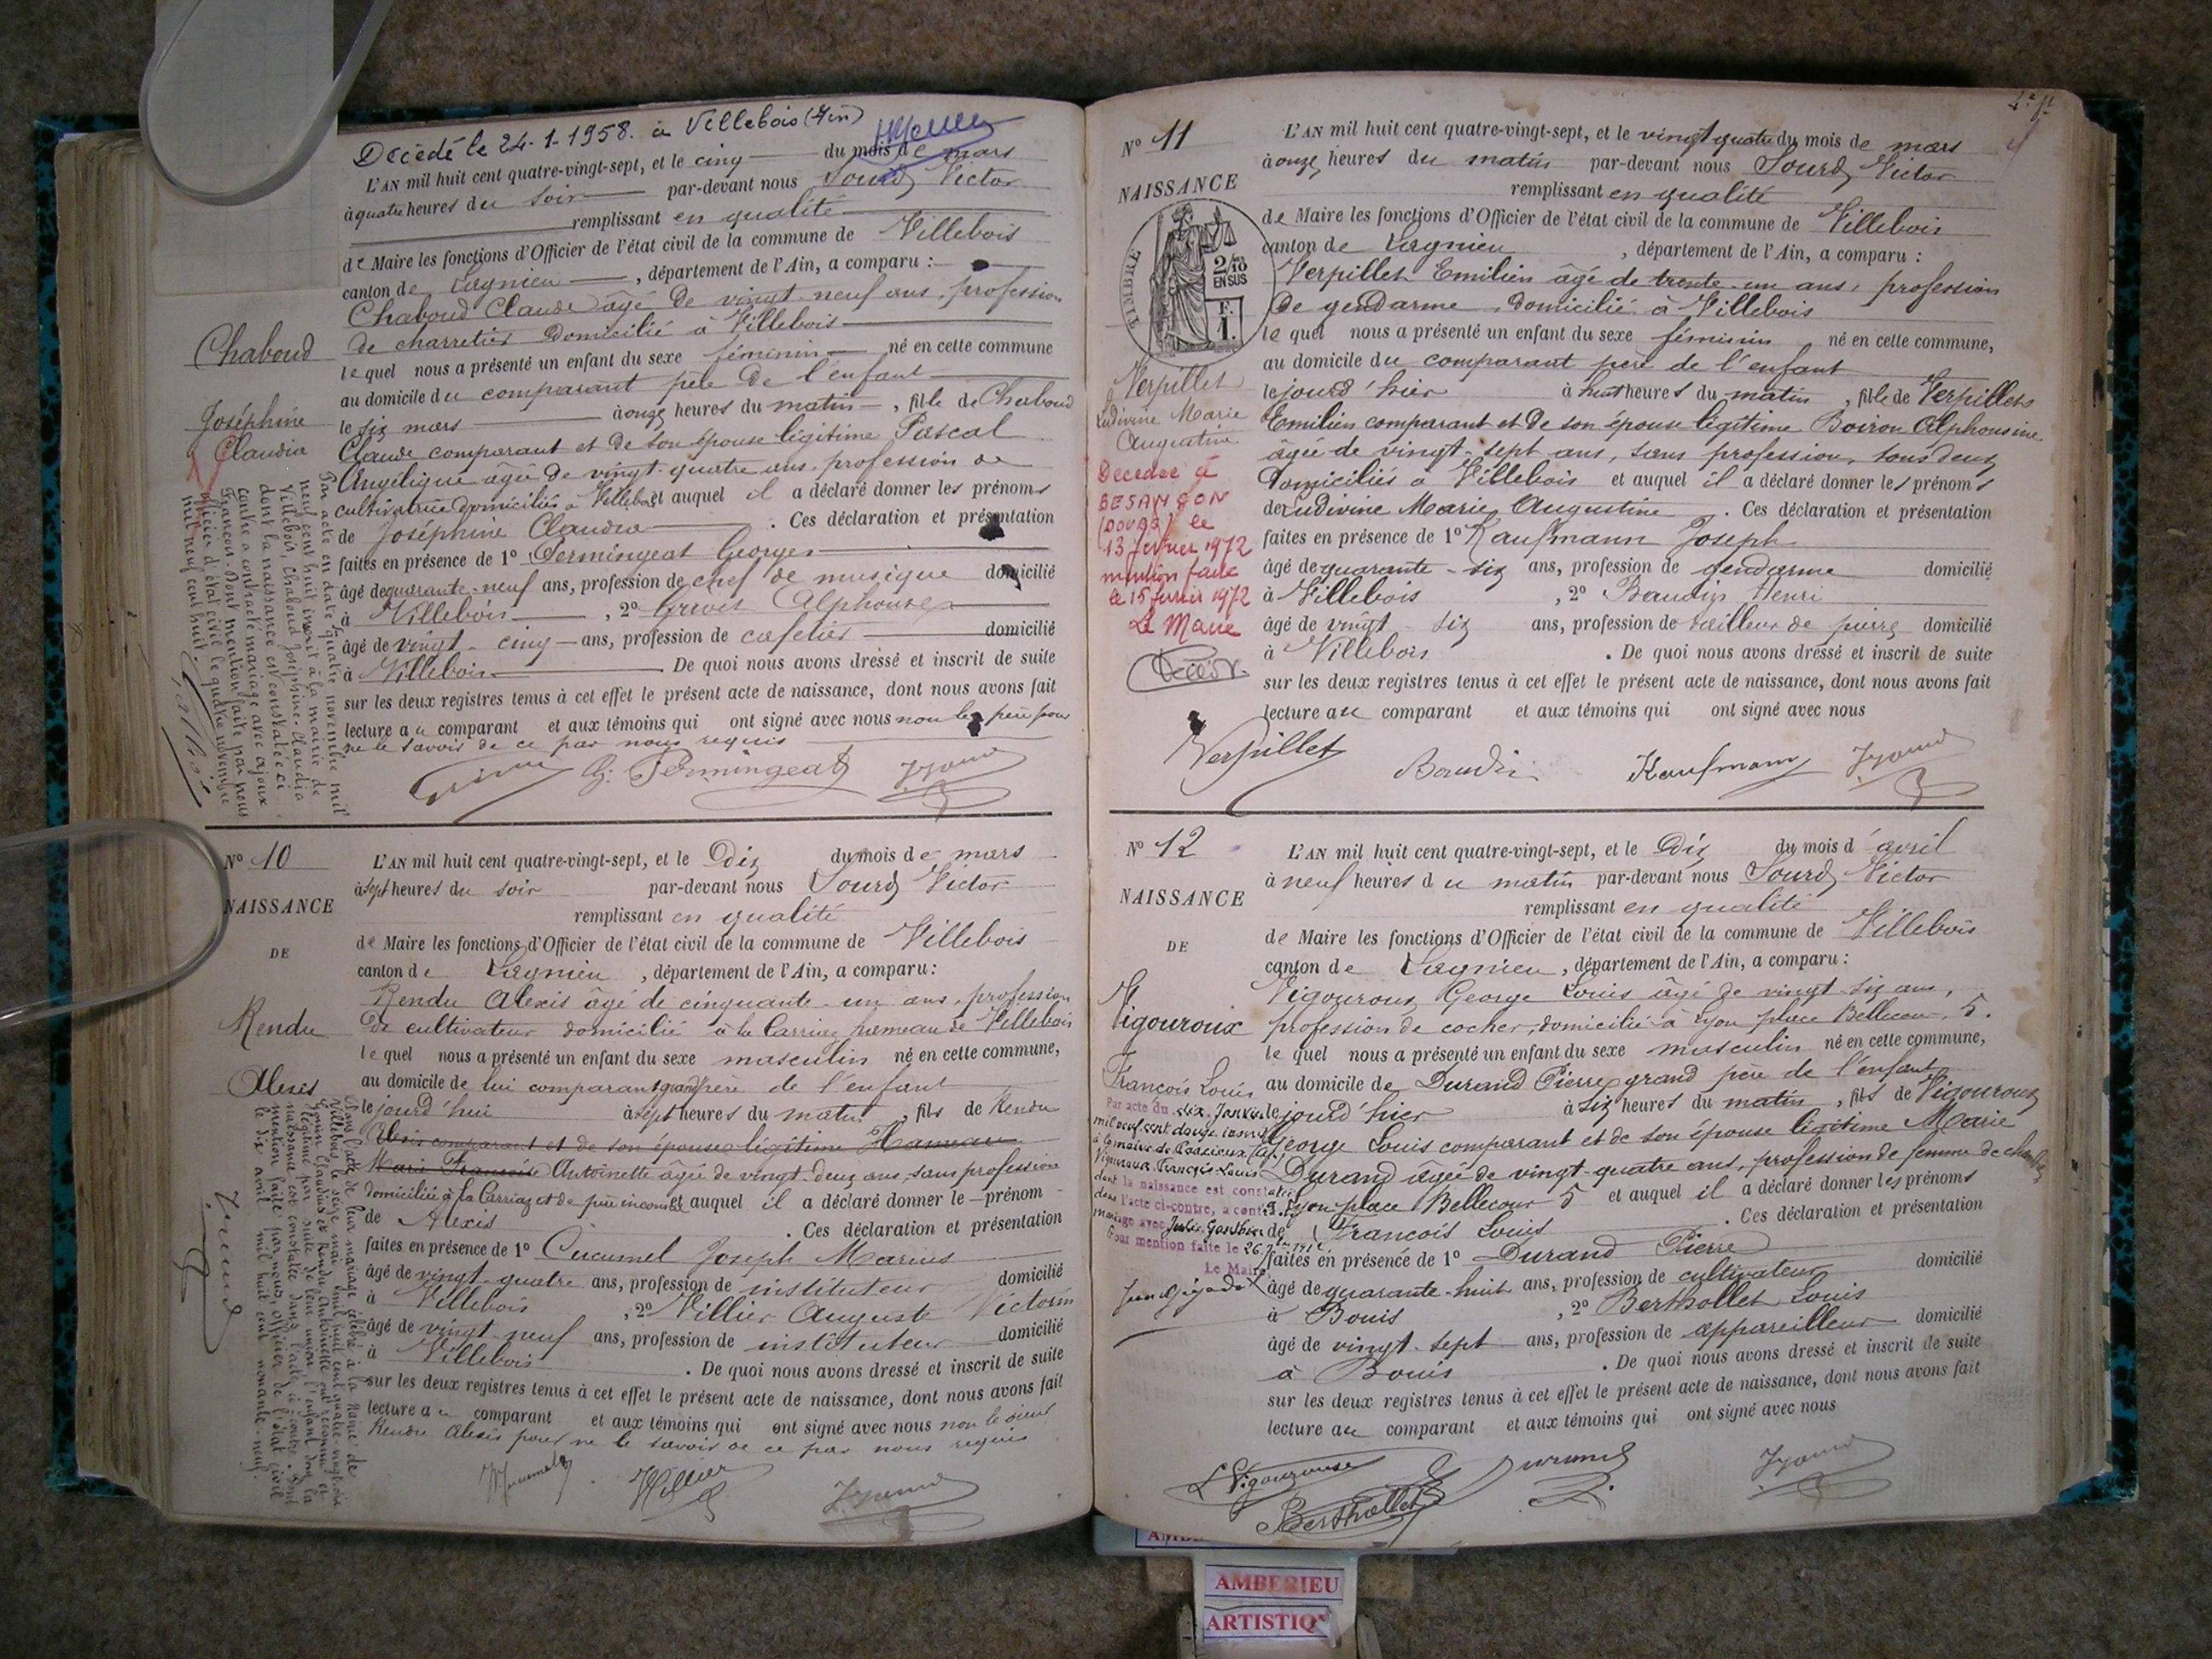 Décédé le 24-1-1958. à Villebois (Ain)
L'AN mil huit cent quatre-vingt-sept, et le cinq du mois de mars
à quatre heures du soir par-devant nous Sourd Victor
remplissant en qualité
de Maire les fonctions d'Officier de l'état civil de la commune de Villebois
canton de Lagnieu, département de l'Ain, a comparu :
Chaboud Claude âgé de vingt-neuf ans, profession
de charretier domicilié à Villebois
lequel nous a présenté un enfant du sexe féminin né en cette commune
au domicile du comparant père de l'enfant
le six mars à onze heures du matin, fille de Chaboud
Claude comparant et de son épouse légitime Pascal
Angélique âgée de vingt-quatre ans, profession de
cultivatrice domiciliés à Villebois et auquel il a déclaré donner les prénoms
de Joséphine Claudia. Ces déclaration et présentation
faites en présence de 1° Permingeat Georges
âgé de quarante-neuf ans, profession de chef de musique domicilié
à Villebois, 2° Alphonse
âgé de vingt-cinq ans, profession de cafetier domicilié
à Villebois. De quoi nous avons dressé et inscrit de suite
sur les deux registres tenus à cet effet le présent acte de naissance, dont nous avons fait
lecture au comparant et aux témoins qui ont signé avec nous non le père pour
ne le savoir de ce par nous requis
G. Permingeat
Chaboud
Joséphine
Claudia
Par acte en date quatre novembre mil
neuf cent huit inscrit à la mairie de
Villebois, Chaboud Joséphine Claudia
dont la naissance est constatée ci
contre a contracté mariage avec
François. Dont mention faite par nous
officier d'état civil le quatre novembre
mil neuf cent huit.
N° 10
NAISSANCE
DE
Rendu
Alexis
L'AN mil huit cent quatre-vingt-sept, et le Dix du mois de mars
à sept heures du soir par-devant nous Sourd Victor
remplissant en qualité
de Maire les fonctions d'Officier de l'état civil de la commune de Villebois
canton de Lagnieu, département de l'Ain, a comparu :
Rendu Alexis âgé de cinquante-un ans, profession
de cultivateur domicilié à la Carriaz hameau de Villebois
lequel nous a présenté un enfant du sexe masculin né en cette commune,
au domicile de lui comparant grand père de l'enfant
le jourd'hui à sept heures du matin, fils de Rendu
Alexis comparant et de son épouse légitime
Marie Françoise Antoinette âgée de vingt-deux ans, sans profession
domiciliée à la Carriaz et de père inconnu et auquel il a déclaré donner le prénom
de Alexis. Ces déclaration et présentation
faites en présence de 1° Cucumel Joseph Marius
âgé de vingt-quatre ans, profession de instituteur domicilié
à Villebois, 2° Villier Auguste Victorin
âgé de vingt-neuf ans, profession de instituteur domicilié
à Villebois. De quoi nous avons dressé et inscrit de suite
sur les deux registres tenus à cet effet le présent acte de naissance, dont nous avons fait
lecture au comparant et aux témoins qui ont signé avec nous non le sieur
Rendu Alexis pour ne le savoir de ce par nous requis
Villier
Dans l'acte de leur mariage célébré à la Mairie de
Villebois le seize mai mil huit cent quatre-vingt-huit
Claudius et Rendu Antoinette ont reconnu et
légitimé par suite de leur union l'enfant dont la
naissance est constatée dans l'acte ci-contre. Dont
mention faite par nous, officier de l'état civil
le dix avril mil huit cent nonante-neuf.
N° 11
NAISSANCE
TIMBRE
2/10
EN SUS
F.
1.
Verpillet
Ludivine Marie
Augustine
Décédée à
BESANÇON
(DOUBS) le
13 février 1972
mention faite
le 15 février 1972
Le Maire
L'AN mil huit cent quatre-vingt-sept, et le vingt quatre du mois de mars
à onze heures du matin par-devant nous Sourd Victor
remplissant en qualité
de Maire les fonctions d'Officier de l'état civil de la commune de Villebois
canton de Lagnieu, département de l'Ain, a comparu :
Verpillet Emilien âgé de trente-un ans, profession
de gendarme, domicilié à Villebois
lequel nous a présenté un enfant du sexe féminin né en cette commune,
au domicile du comparant père de l'enfant
le jourd'hier à huit heures du matin, fille de Verpillet
Emilien comparant et de son épouse légitime Boiron Alphonsine
âgée de vingt-sept ans, sans profession, tous deux
domiciliés à Villebois et auquel il a déclaré donner les prénoms
de Ludivine Marie Augustine. Ces déclaration et présentation
faites en présence de 1° Kaufmann Joseph
âgé de quarante-six ans, profession de gendarme domicilié
à Villebois, 2° Baudin Henri
âgé de vingt-six ans, profession de tailleur de pierre domicilié
à Villebois. De quoi nous avons dressé et inscrit de suite
sur les deux registres tenus à cet effet le présent acte de naissance, dont nous avons fait
lecture au comparant et aux témoins qui ont signé avec nous
Verpillet Baudin Kaufmann
N° 12
NAISSANCE
DE
Vigouroux
François Louis
Par acte du dix Janvier
mil neuf cent douze inscrit
à la mairie de
Vigouroux François Louis
dont la naissance est constatée
dans l'acte ci-contre, a contracté
mariage avec Julie Gonthier
Pour mention faite le
Le Maire
L'AN mil huit cent quatre-vingt-sept, et le Dix du mois d'avril
à neuf heures du matin par-devant nous Sourd Victor
remplissant en qualité
de Maire les fonctions d'Officier de l'état civil de la commune de Villebois
canton de Lagnieu, département de l'Ain, a comparu :
Vigouroux George Louis âgé de vingt-six ans,
profession de cocher, domicilié à Lyon place Bellecour, 5.
lequel nous a présenté un enfant du sexe masculin né en cette commune,
au domicile de Durand Pierre grand père de l'enfant
le jourd'hier à six heures du matin, fils de Vigouroux
George Louis comparant et de son épouse légitime Marie
Durand âgée de vingt-quatre ans, profession de femme de chambre
à Lyon place Bellecour 5 et auquel il a déclaré donner les prénoms
de François Louis. Ces déclaration et présentation
faites en présence de 1° Durand Pierre
âgé de quarante-huit ans, profession de cultivateur domicilié
à Bouis, 2° Berthollet Louis
âgé de vingt-sept ans, profession de appareilleur domicilié
à Bouis. De quoi nous avons dressé et inscrit de suite
sur les deux registres tenus à cet effet le présent acte de naissance, dont nous avons fait
lecture au comparant et aux témoins qui ont signé avec nous
L Vigouroux Durand
Berthollet
AMBERIEU
ARTISTIQ